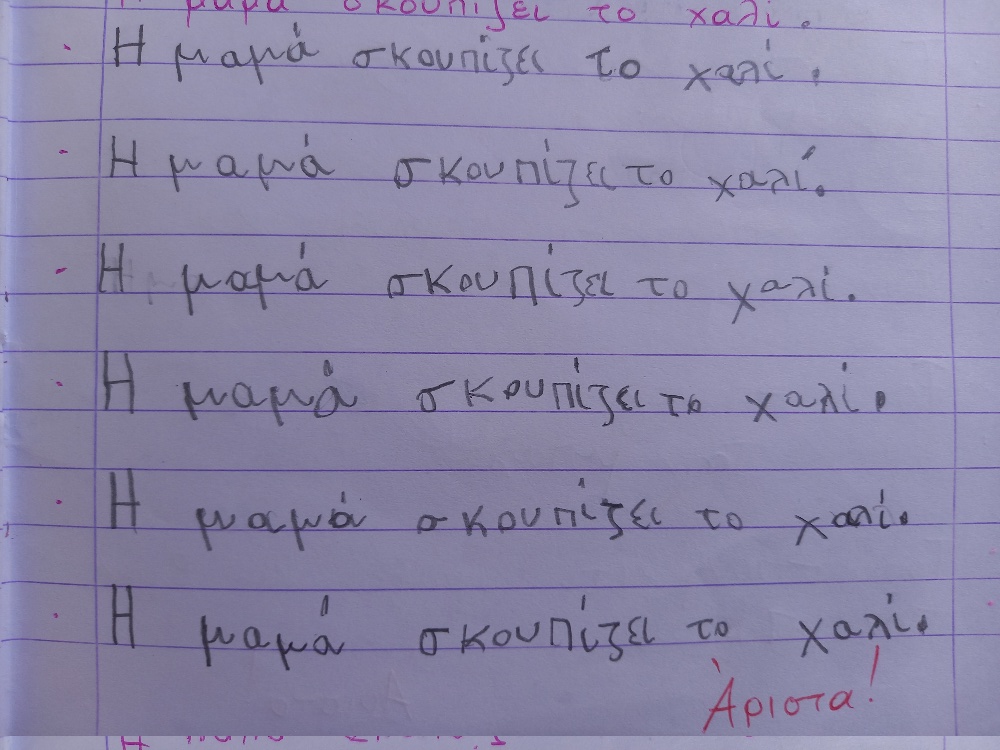 μαμά σκουπίζει το χαλί.
Η μαμά σκουπίζει το χαλί.
Η μαμά σκουπίζει το χαλί.
Η μαμά σκουπίζει το χαλί.
Η μαμά σκουπίζει το χαλί.
Η μαμά σκουπίζει το χαλί.
Η μαμά σκουπίζει το χαλί.
Άριστα!